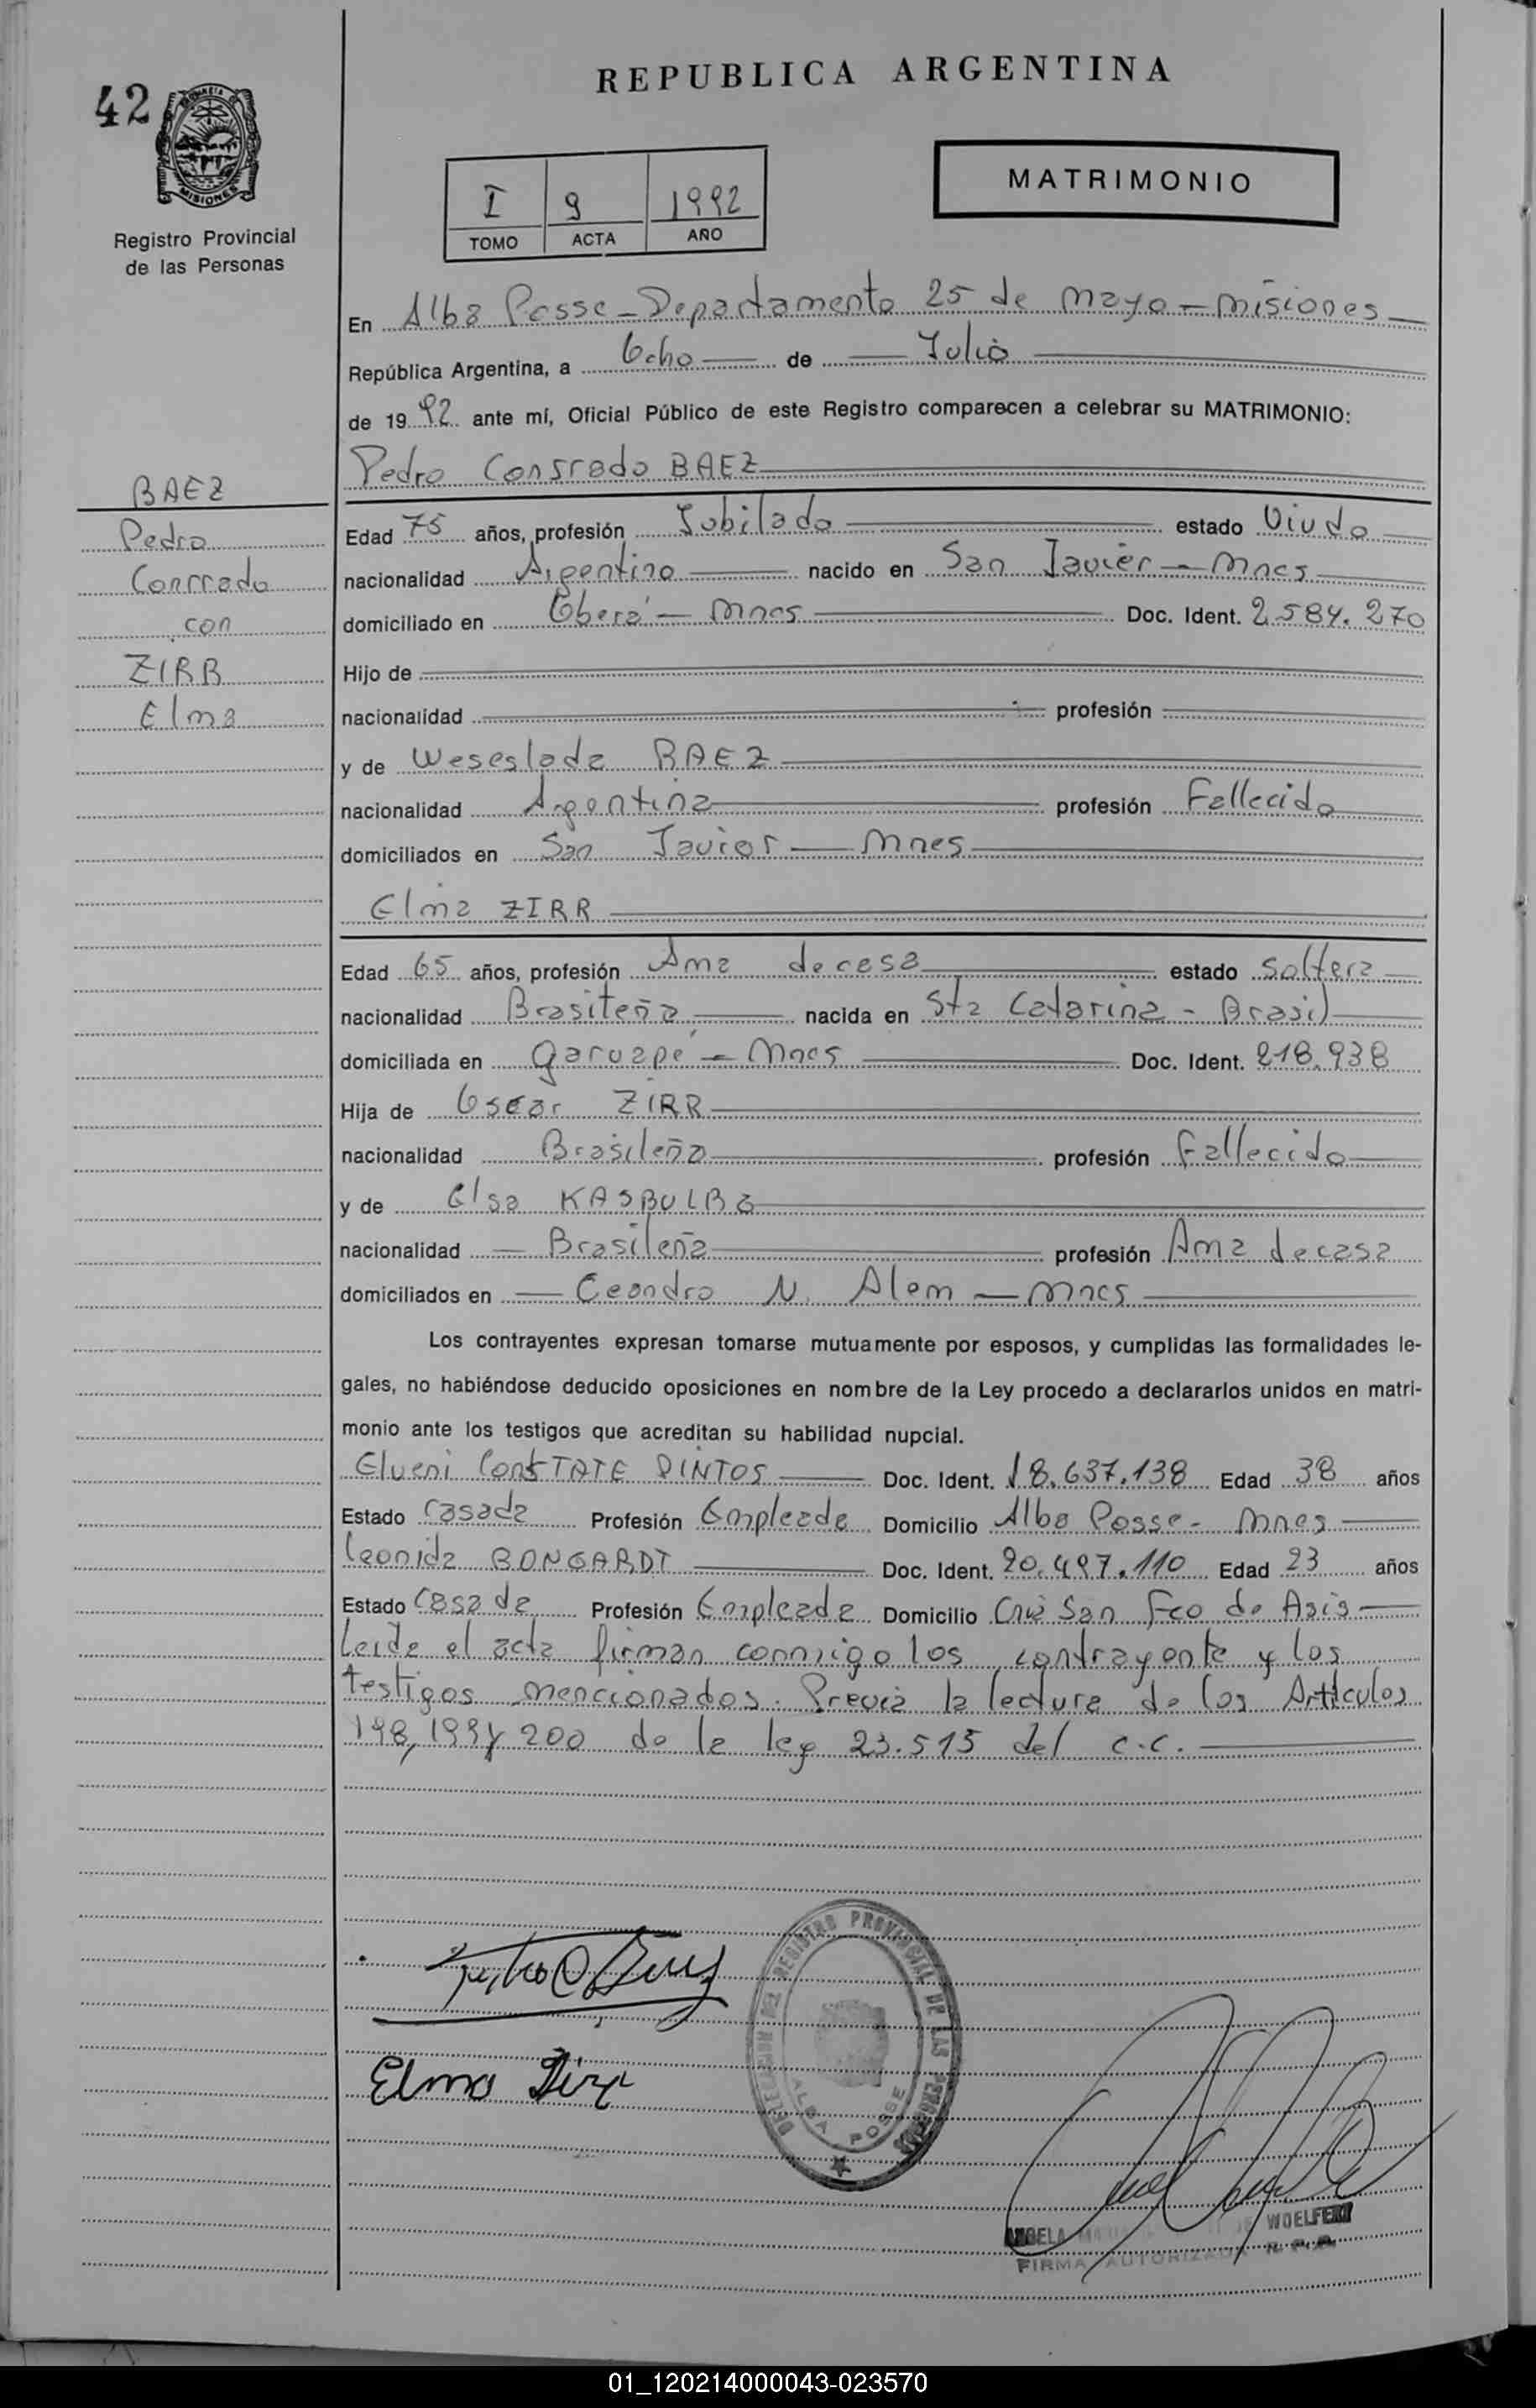 REPUBLICA ARGENTINA
42
MISIONES
Registro Provincial
de las Personas
I 9 1992
TOMO ACTA AÑO
MATRIMONIO
En Alba Posse - Departamento 25 de Mayo - Misiones
República Argentina, a Ocho de Julio
de 1992 ante mí, Oficial Público de este Registro comparecen a celebrar su MATRIMONIO:
Pedro Conrrado BAEZ
BAEZ
Pedro
Conrrado
con
ZIRR
Elma
Edad 75 años, profesión Jubilado estado Viudo
nacionalidad Argentino nacido en San Javier - Mnes
domiciliado en Oberá - Mnes Doc. Ident. 2.584.270
Hijo de
nacionalidad profesión
y de Weseslada BAEZ
nacionalidad Argentina profesión Fallecida
domiciliados en San Javier - Mnes
Elma ZIRR
Edad 65 años, profesión Ama de casa estado Soltera
nacionalidad Brasileña nacida en Sta Catarina - Brasil
domiciliada en Garuapé - Mnes Doc. Ident. 218.938
Hija de Oscar ZIRR
nacionalidad Brasileña profesión Fallecido
y de Elsa KASBULBA
nacionalidad Brasileña profesión Ama de casa
domiciliados en Leandro N. Alem - Mnes
Los contrayentes expresan tomarse mutuamente por esposos, y cumplidas las formalidades le-
gales, no habiéndose deducido oposiciones en nombre de la Ley procedo a declararlos unidos en matri-
monio ante los testigos que acreditan su habilidad nupcial.
Elueni PINTOS Doc. Ident. 18.637.138 Edad 38 años
Estado Casada Profesión Empleada Domicilio Alba Posse - Mnes
Leonida BONGARDT Doc. Ident. 20.497.110 Edad 23 años
Estado Casada Profesión Empleada Domicilio San Fco de Asis
Leida el acta firman conmigo los contrayente y los
testigos mencionados. Previa la lectura de los Artículos
198, 199 y 200 de la ley 23.515 del C.C.
REGISTRO PROVINCIAL DE LAS PERSONAS
ALBA POSSE
Elma Zirr
WOELFERT
FIRMA AUTORIZADA R. P. P.
01_120214000043-023570